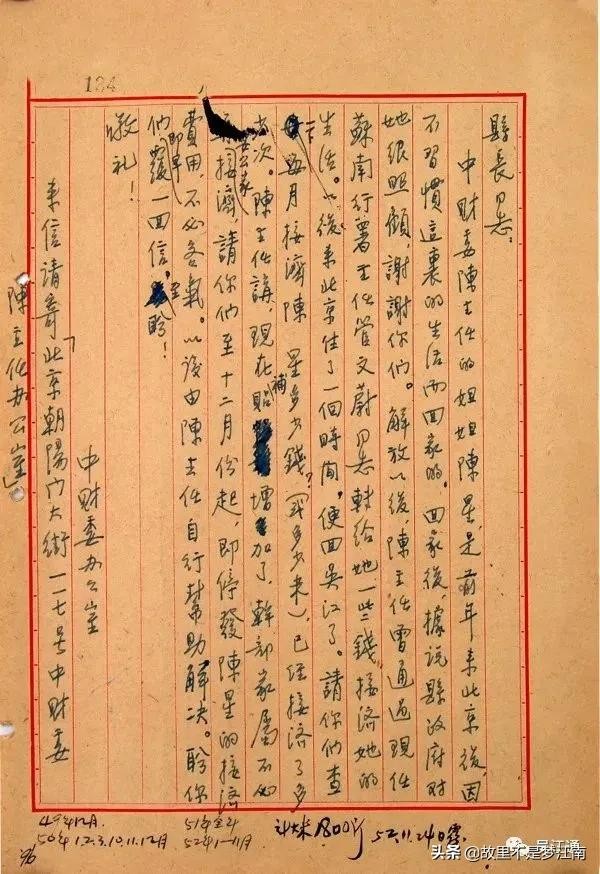 184
縣長同志：
中財委陳主任的姐姐陳星，是前年来北京後，因
不習慣這裏的生活而回家的。回家後，據説縣政府对
她很照顧，謝謝你們。解放以後，陳主任曾通過現任
蘇南行署主任管文蔚同志轉给她一些錢，接济她的
生活。以後来北京住了一個時間，便回吳江了。請你們查
一下每月接濟陳星多少錢？（或多少米），已经接济了多
少次。陳主任講，現在補貼增加了，幹部家屬不必
公家接濟，請你們至十二月份起，即停發陳星的接济
費用，不必客氣。以後由陳主任自行幫助解决。盼你
们即早覆一回信，至盼！
敬礼！
中財委办公室
来信請寄「北京朝陽门大街一一七号中財委
陳主任办公室」
49年12月.
50年1.2.3.10.11.12月
51年全年
52年1—11月
計米1800斤
52.11.24日
96
吴江通
头条 @故里不是梦江南